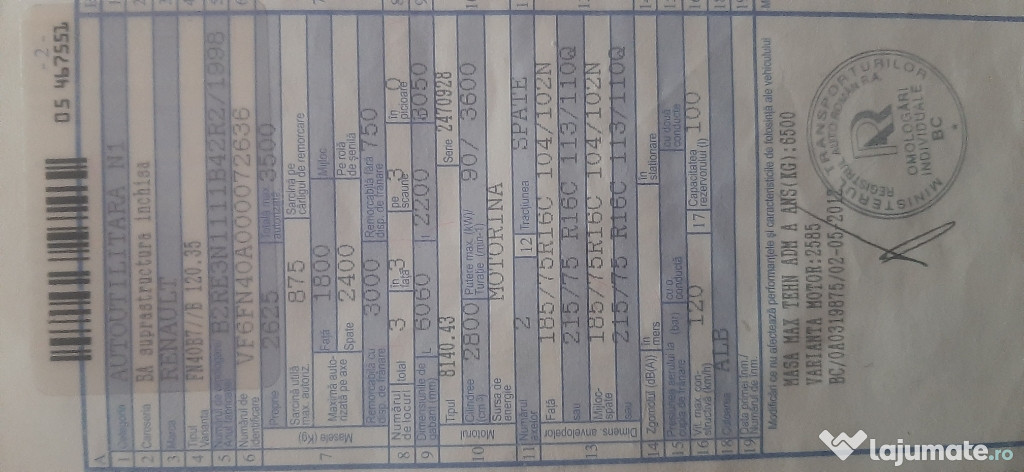 05 467551
- 2 -
A
1 Categoria AUTOUTILITARA N1
2 Caroseria BA suprastructura inchisa
3 Marca RENAULT
4 Tipul Varianta FN40B7/B 120.35
5 B2RE3N1111B42R2/1998
6 Numărul de identificare
7 Masele (Kg) Proprie 2625 3500
Sarcină utilă max. autoriz. 875 Sarcina pe cârligul de remorcare
Maximă autorizată pe axe Față 1800 Mijloc
Spate 2400 Pe rolă de șenilă
Remorcabilă cu disp. de frânare 3000 Remorcabilă fără disp. de frânare 750
8 Numărul de locuri total 3 în față 3 pe scaune 3 în picioare 0
9 Dimensiunile de gabarit (mm) L 6060 l 2200 3050
10 Motorul Tipul 8140.43 Serie 2470928
Cilindree (cm3) 2800 Putere max. (kW)/ Turație (min-1) 90/ 3600
Sursa de energie MOTORINA
11 Numărul axelor 2 12 Tracțiunea SPATE
13 Dimens. anvelopelor Față 185/75R16C 104/102N
sau 215/75 R16C 113/110Q
Mijloc-spate 185/75R16C 104/102N
sau 215/75 R16C 113/110Q
14 Zgomotul (dB(A)) în mers în staționare
15 Presiunea aerului la cupla de frânare (bar) cu o conductă cu două conducte
16 Vit. max. constructivă (km/h) 120 17 Capacitatea rezervorului (l) 100
18 Culoarea ALB
19
Modificări ce nu afectează performanțele și caracteristicile de folosință ale vehiculului
MASA MAX TEHN ADM A ANS(KG):6500
VARIANTA MOTOR:2585
BC/0A0319875/02-05-2012
MINISTERUL TRANSPORTURILOR
REGISTRUL AUTO ROMÂN R.A.
OMOLOGĂRI
INDIVIDUALE
BC
lajumate.ro